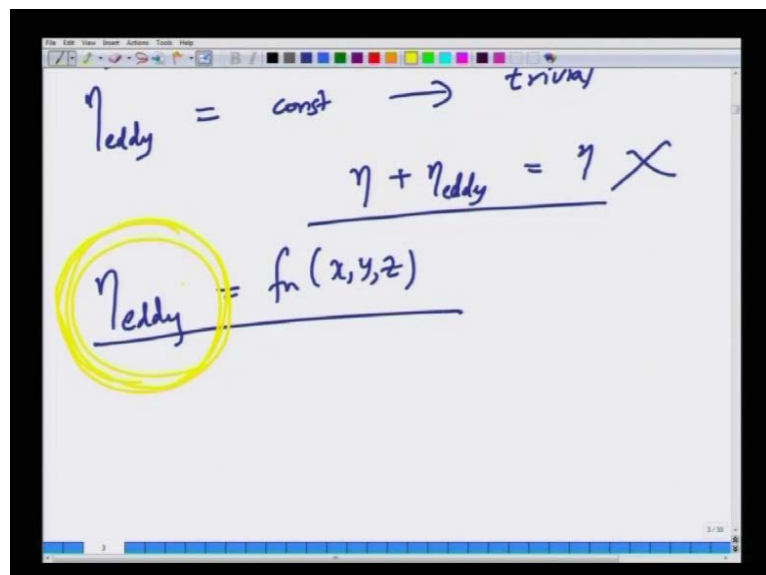 File Edit View Insert Actions Tools Help
η_eddy = const → trivial
η + η_eddy = η X
η_eddy = fn (x, y, z)
3/33
3